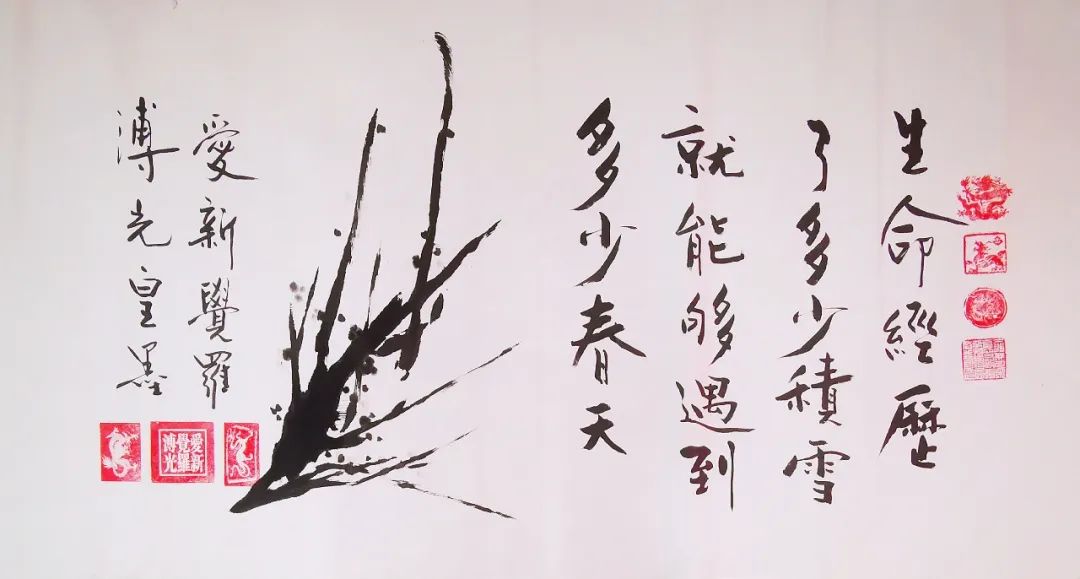 生命經歷
了多少積雪
就能够遇到
多少春天
愛新覺羅
溥光皇墨
愛新
覺羅
溥光